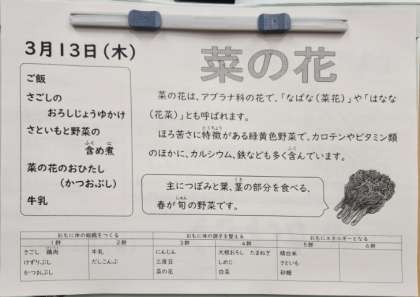 3月13日(木)
菜の花
ご飯
さごしの
おろしじょうゆかけ
さといもと野菜の
含め煮
菜の花のおひたし
(かつおぶし)
牛乳
菜の花は、アブラナ科の花で、「なばな(菜花)」や「はなな
(花菜)」とも呼ばれます。
ほろ苦さに特徴がある緑黄色野菜で、カロテンやビタミン類
のほかに、カルシウム、鉄なども多く含んでいます。
主につぼみと葉、茎の部分を食べる、
春が旬の野菜です。
おもに体の組織をつくる おもに体の調子を整える おもにエネルギーとなる
1群 2群 3群 4群 5群 6群
さごし 鶏肉 牛乳 にんじん 大根おろし たまねぎ 精白米
けずりぶし だしこんぶ 三度豆 しめじ さといも
かつおぶし 菜の花 白菜 砂糖